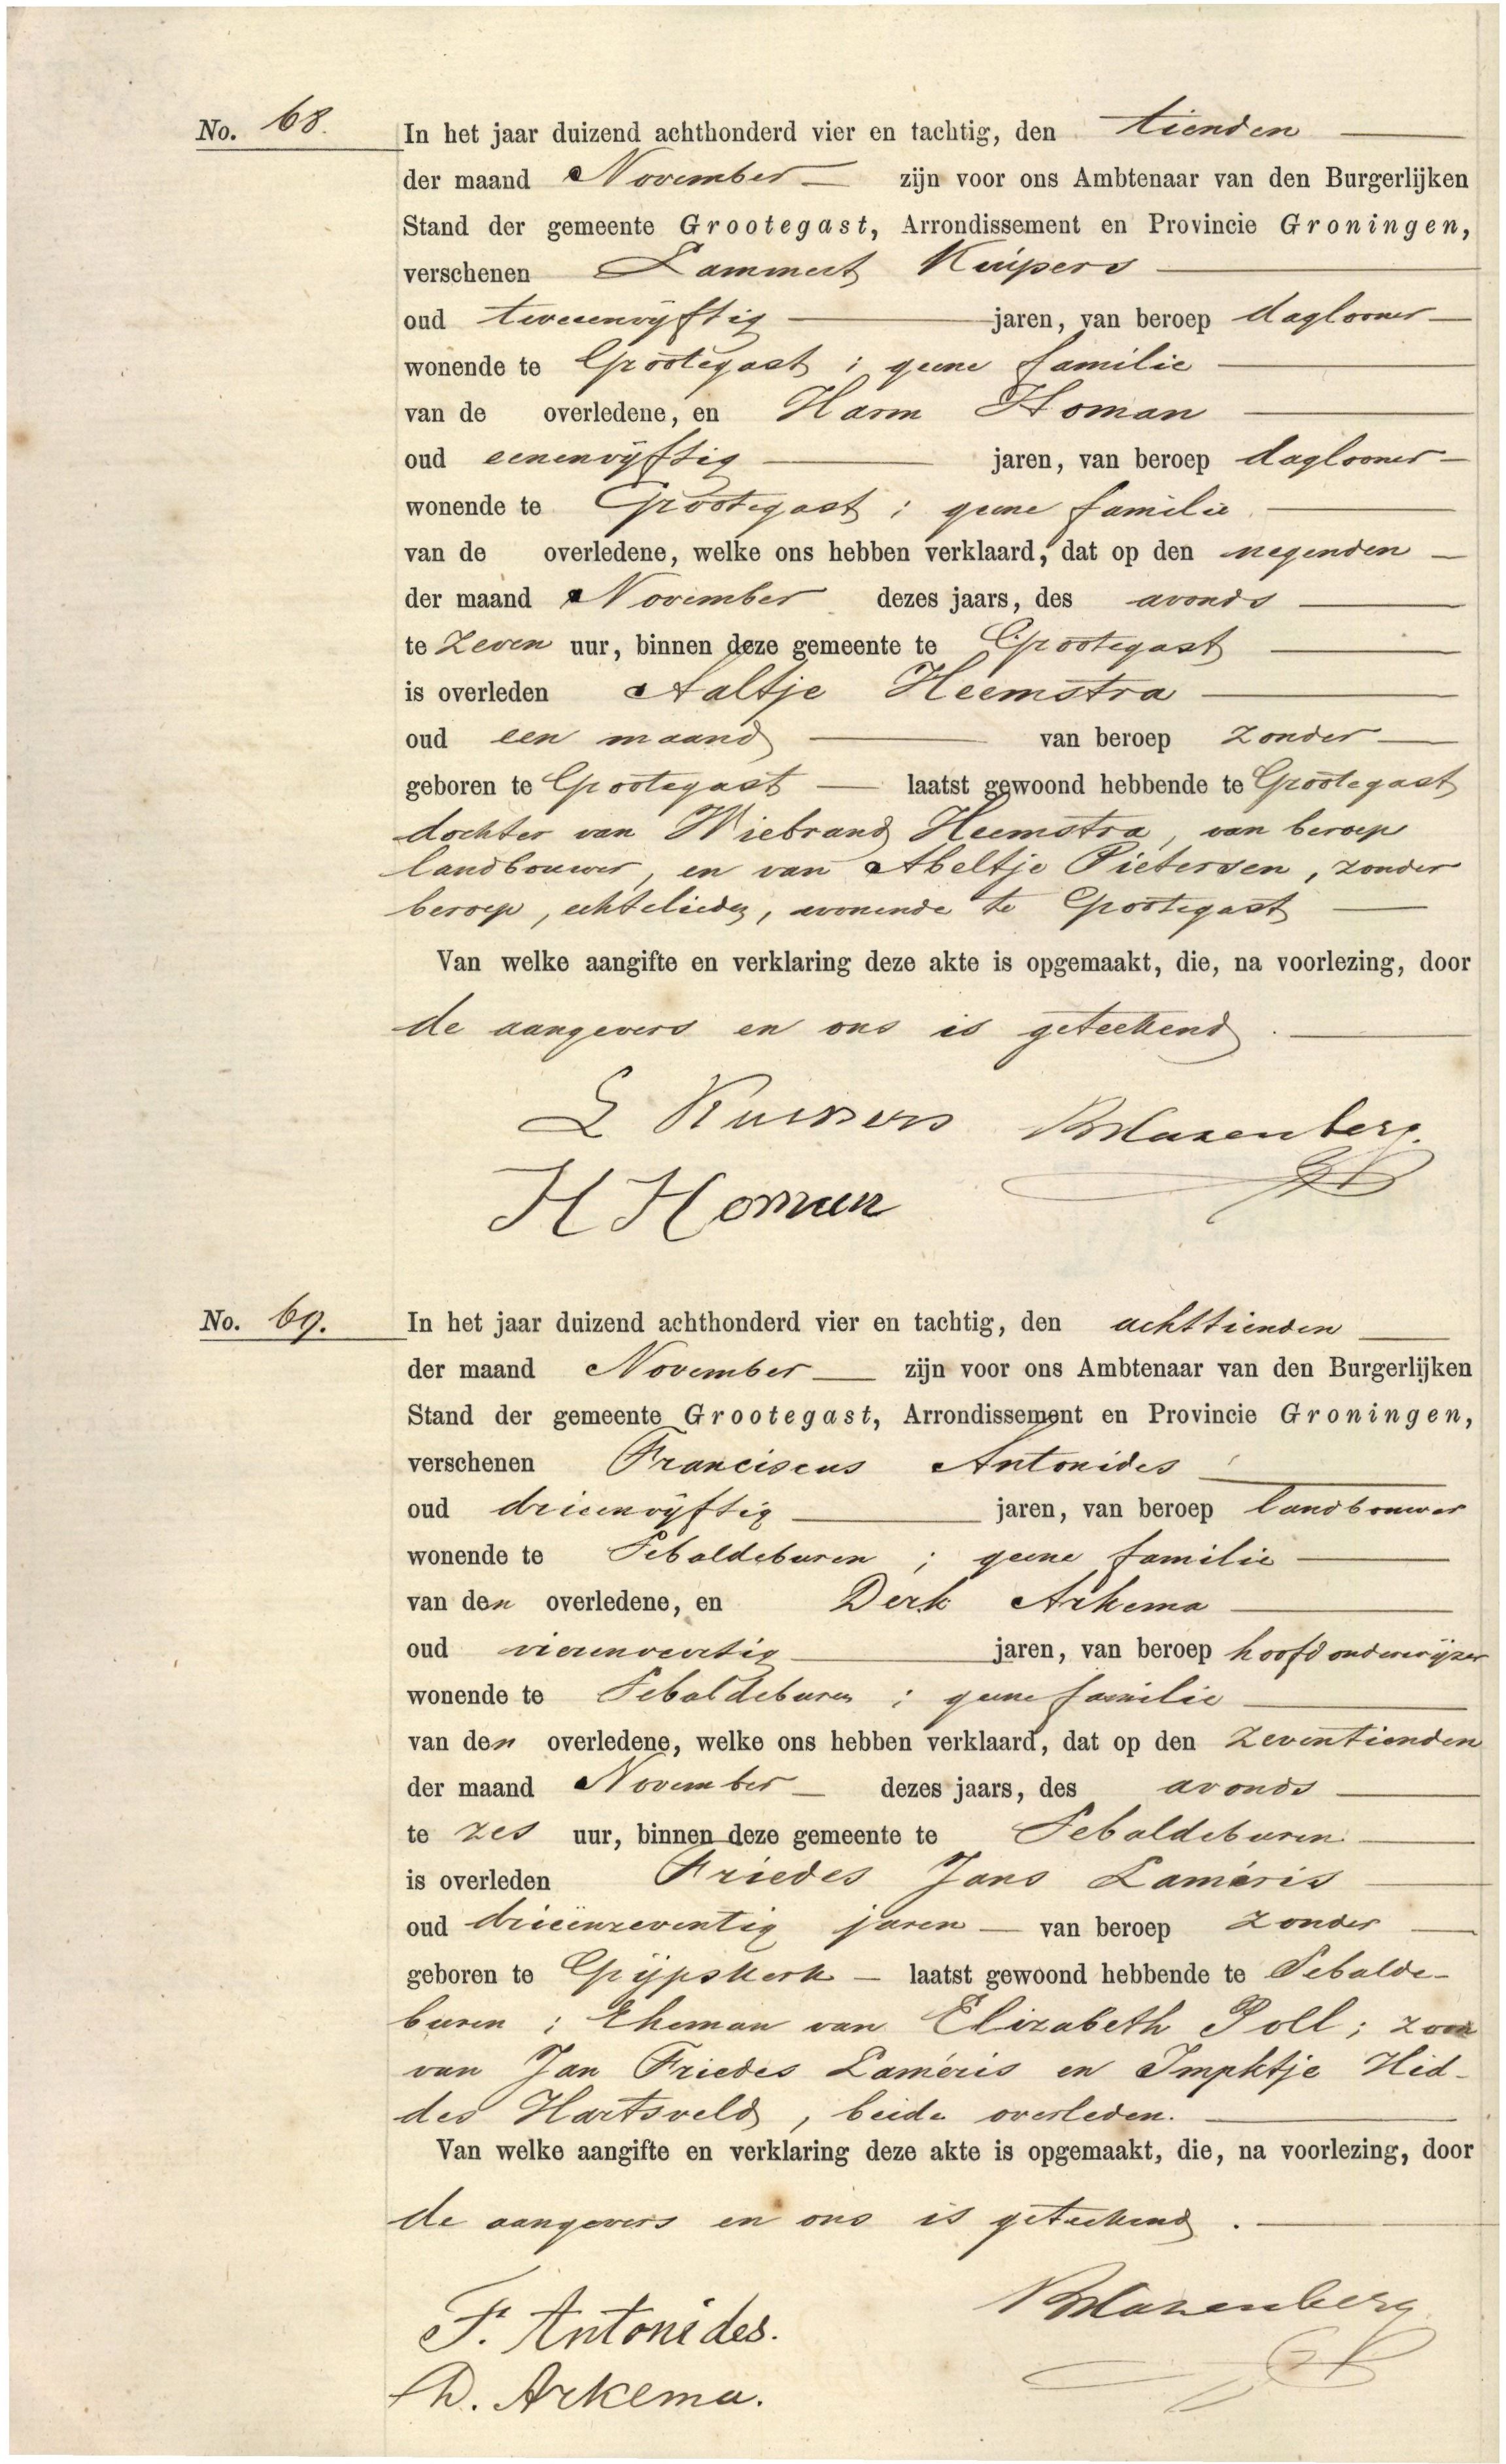 No. 68.
In het jaar duizend achthonderd vier en tachtig, den tienden
der maand November zijn voor ons Ambtenaar van den Burgerlijken
Stand der gemeente Grootegast, Arrondissement en Provincie Groningen,
verschenen Lammert Kuipers
oud tweeenvijftig jaren, van beroep daglooner
wonende te Grootegast ; geene familie
van de overledene, en Harm Homan
oud eenenvijftig jaren, van beroep daglooner
wonende te Grootegast ; geene familie
van de overledene, welke ons hebben verklaard, dat op den negenden
der maand November dezes jaars, des avonds
te zeven uur, binnen deze gemeente te Grootegast
is overleden Aaltje Heemstra
oud een maand van beroep zonder
geboren te Grootegast laatst gewoond hebbende te Grootegast
dochter van Wiebrand Heemstra, van beroep
landbouwer, en van Abeltje Pietersen, zonder
beroep, echtelieden, wonende te Grootegast
Van welke aangifte en verklaring deze akte is opgemaakt, die, na voorlezing, door
de aangevers en ons is geteekend.
L Kuipers
H Homan
No. 69.
In het jaar duizend achthonderd vier en tachtig, den achttienden
der maand November zijn voor ons Ambtenaar van den Burgerlijken
Stand der gemeente Grootegast, Arrondissement en Provincie Groningen,
verschenen Franciscus Antonides
oud drieenvijftig jaren, van beroep landbouwer
wonende te Sebaldeburen ; geene familie
van den overledene, en Derk Arkema
oud vierenveertig jaren, van beroep hoofdonderwijzer
wonende te Sebaldeburen ; geene familie
van den overledene, welke ons hebben verklaard, dat op den zeventienden
der maand November dezes jaars, des avonds
te zes uur, binnen deze gemeente te Sebaldeburen
is overleden Friedes Jans Laméris
oud drieënzeventig jaren van beroep zonder
geboren te Grijpskerk laatst gewoond hebbende te Sebalde-
buren ; Eheman van Elizabeth Poll ; zoon
van Jan Friedes Laméris en Impktje Hid-
des Hartsveld, beide overleden.
Van welke aangifte en verklaring deze akte is opgemaakt, die, na voorlezing, door
de aangevers en ons is geteekend.
F. Antonides.
D. Arkema.